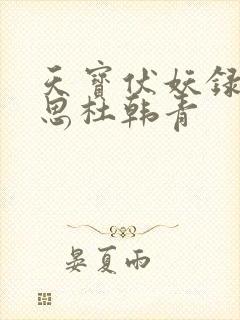 天寶伏妖録
思杜韩青
晏夏雨